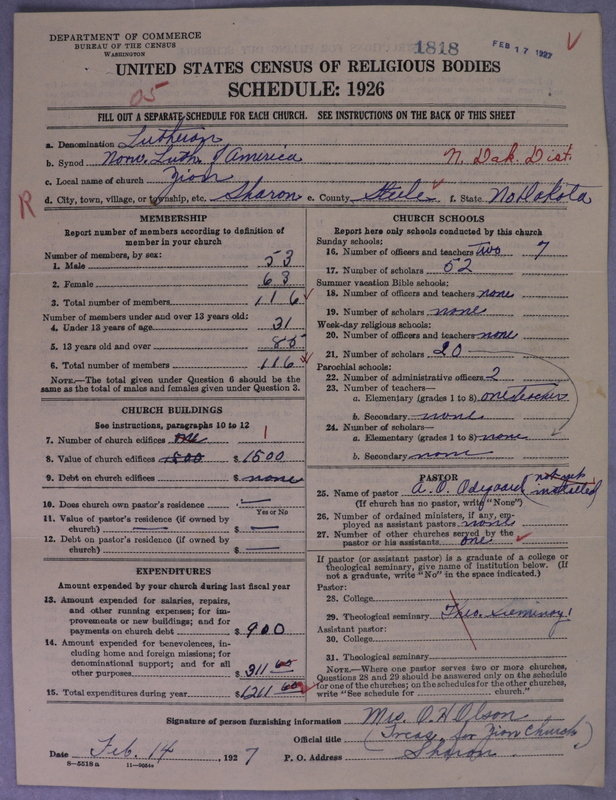 DEPARTMENT OF COMMERCE
BUREAU OF THE CENSUS
WASHINGTON
1818
FEB 17 1927
UNITED STATES CENSUS OF RELIGIOUS BODIES
SCHEDULE: 1926
05
FILL OUT A SEPARATE SCHEDULE FOR EACH CHURCH. SEE INSTRUCTIONS ON THE BACK OF THIS SHEET
a. Denomination Lutheran
b. Synod Norw. Luth. of America N. Dak. Dist.
c. Local name of church Zion
d. City, town, village, or township, etc. Sharon e. County Steele f. State No Dakota
R
MEMBERSHIP
Report number of members according to definition of
member in your church
Number of members, by sex:
1. Male 53
2. Female 63
3. Total number of members 116
Number of members under and over 13 years old:
4. Under 13 years of age 31
5. 13 years old and over 85
6. Total number of members 116
NOTE.—The total given under Question 6 should be the
same as the total of males and females given under Question 3.
CHURCH BUILDINGS
See instructions, paragraphs 10 to 12
7. Number of church edifices one 1
8. Value of church edifices 1500 $ 1500
9. Debt on church edifices $ none
10. Does church own pastor's residence?
Yes or No
11. Value of pastor's residence (if owned by
church) $
12. Debt on pastor's residence (if owned by
church) $
EXPENDITURES
Amount expended by your church during last fiscal year
13. Amount expended for salaries, repairs,
and other running expenses; for im-
provements or new buildings; and for
payments on church debt $ 900
14. Amount expended for benevolences, in-
cluding home and foreign missions; for
denominational support; and for all
other purposes $ 311 60
15. Total expenditures during year $ 1211 60
CHURCH SCHOOLS
Report here only schools conducted by this church
Sunday schools:
16. Number of officers and teachers two 7
17. Number of scholars 52
Summer vacation Bible schools:
18. Number of officers and teachers none
19. Number of scholars none
Week-day religious schools:
20. Number of officers and teachers none
21. Number of scholars 20
Parochial schools:
22. Number of administrative officers 2
23. Number of teachers—
a. Elementary (grades 1 to 8) one teacher
b. Secondary none
24. Number of scholars—
a. Elementary (grades 1 to 8) none
b. Secondary none
PASTOR
25. Name of pastor A. O. Odegaard (not yet installed)
(If church has no pastor, write "None")
26. Number of ordained ministers, if any, em-
ployed as assistant pastors none
27. Number of other churches served by the
pastor or his assistants one
If pastor (or assistant pastor) is a graduate of a college or
theological seminary, give name of Institution below. (If
not a graduate, write "No" in the space indicated.)
Pastor:
28. College
29. Theological seminary Theo.
Assistant pastor:
30. College
31. Theological seminary
NOTE.—Where one pastor serves two or more churches,
Questions 28 and 29 should be answered only on the schedule
for one of the churches; on the schedules for the other churches,
write "See schedule for church."
Signature of person furnishing information Mrs. O. H Olson
Official title (Treas. for Zion Church)
Date Feb. 14, 1927 P. O. Address Sharon
8—5518 a